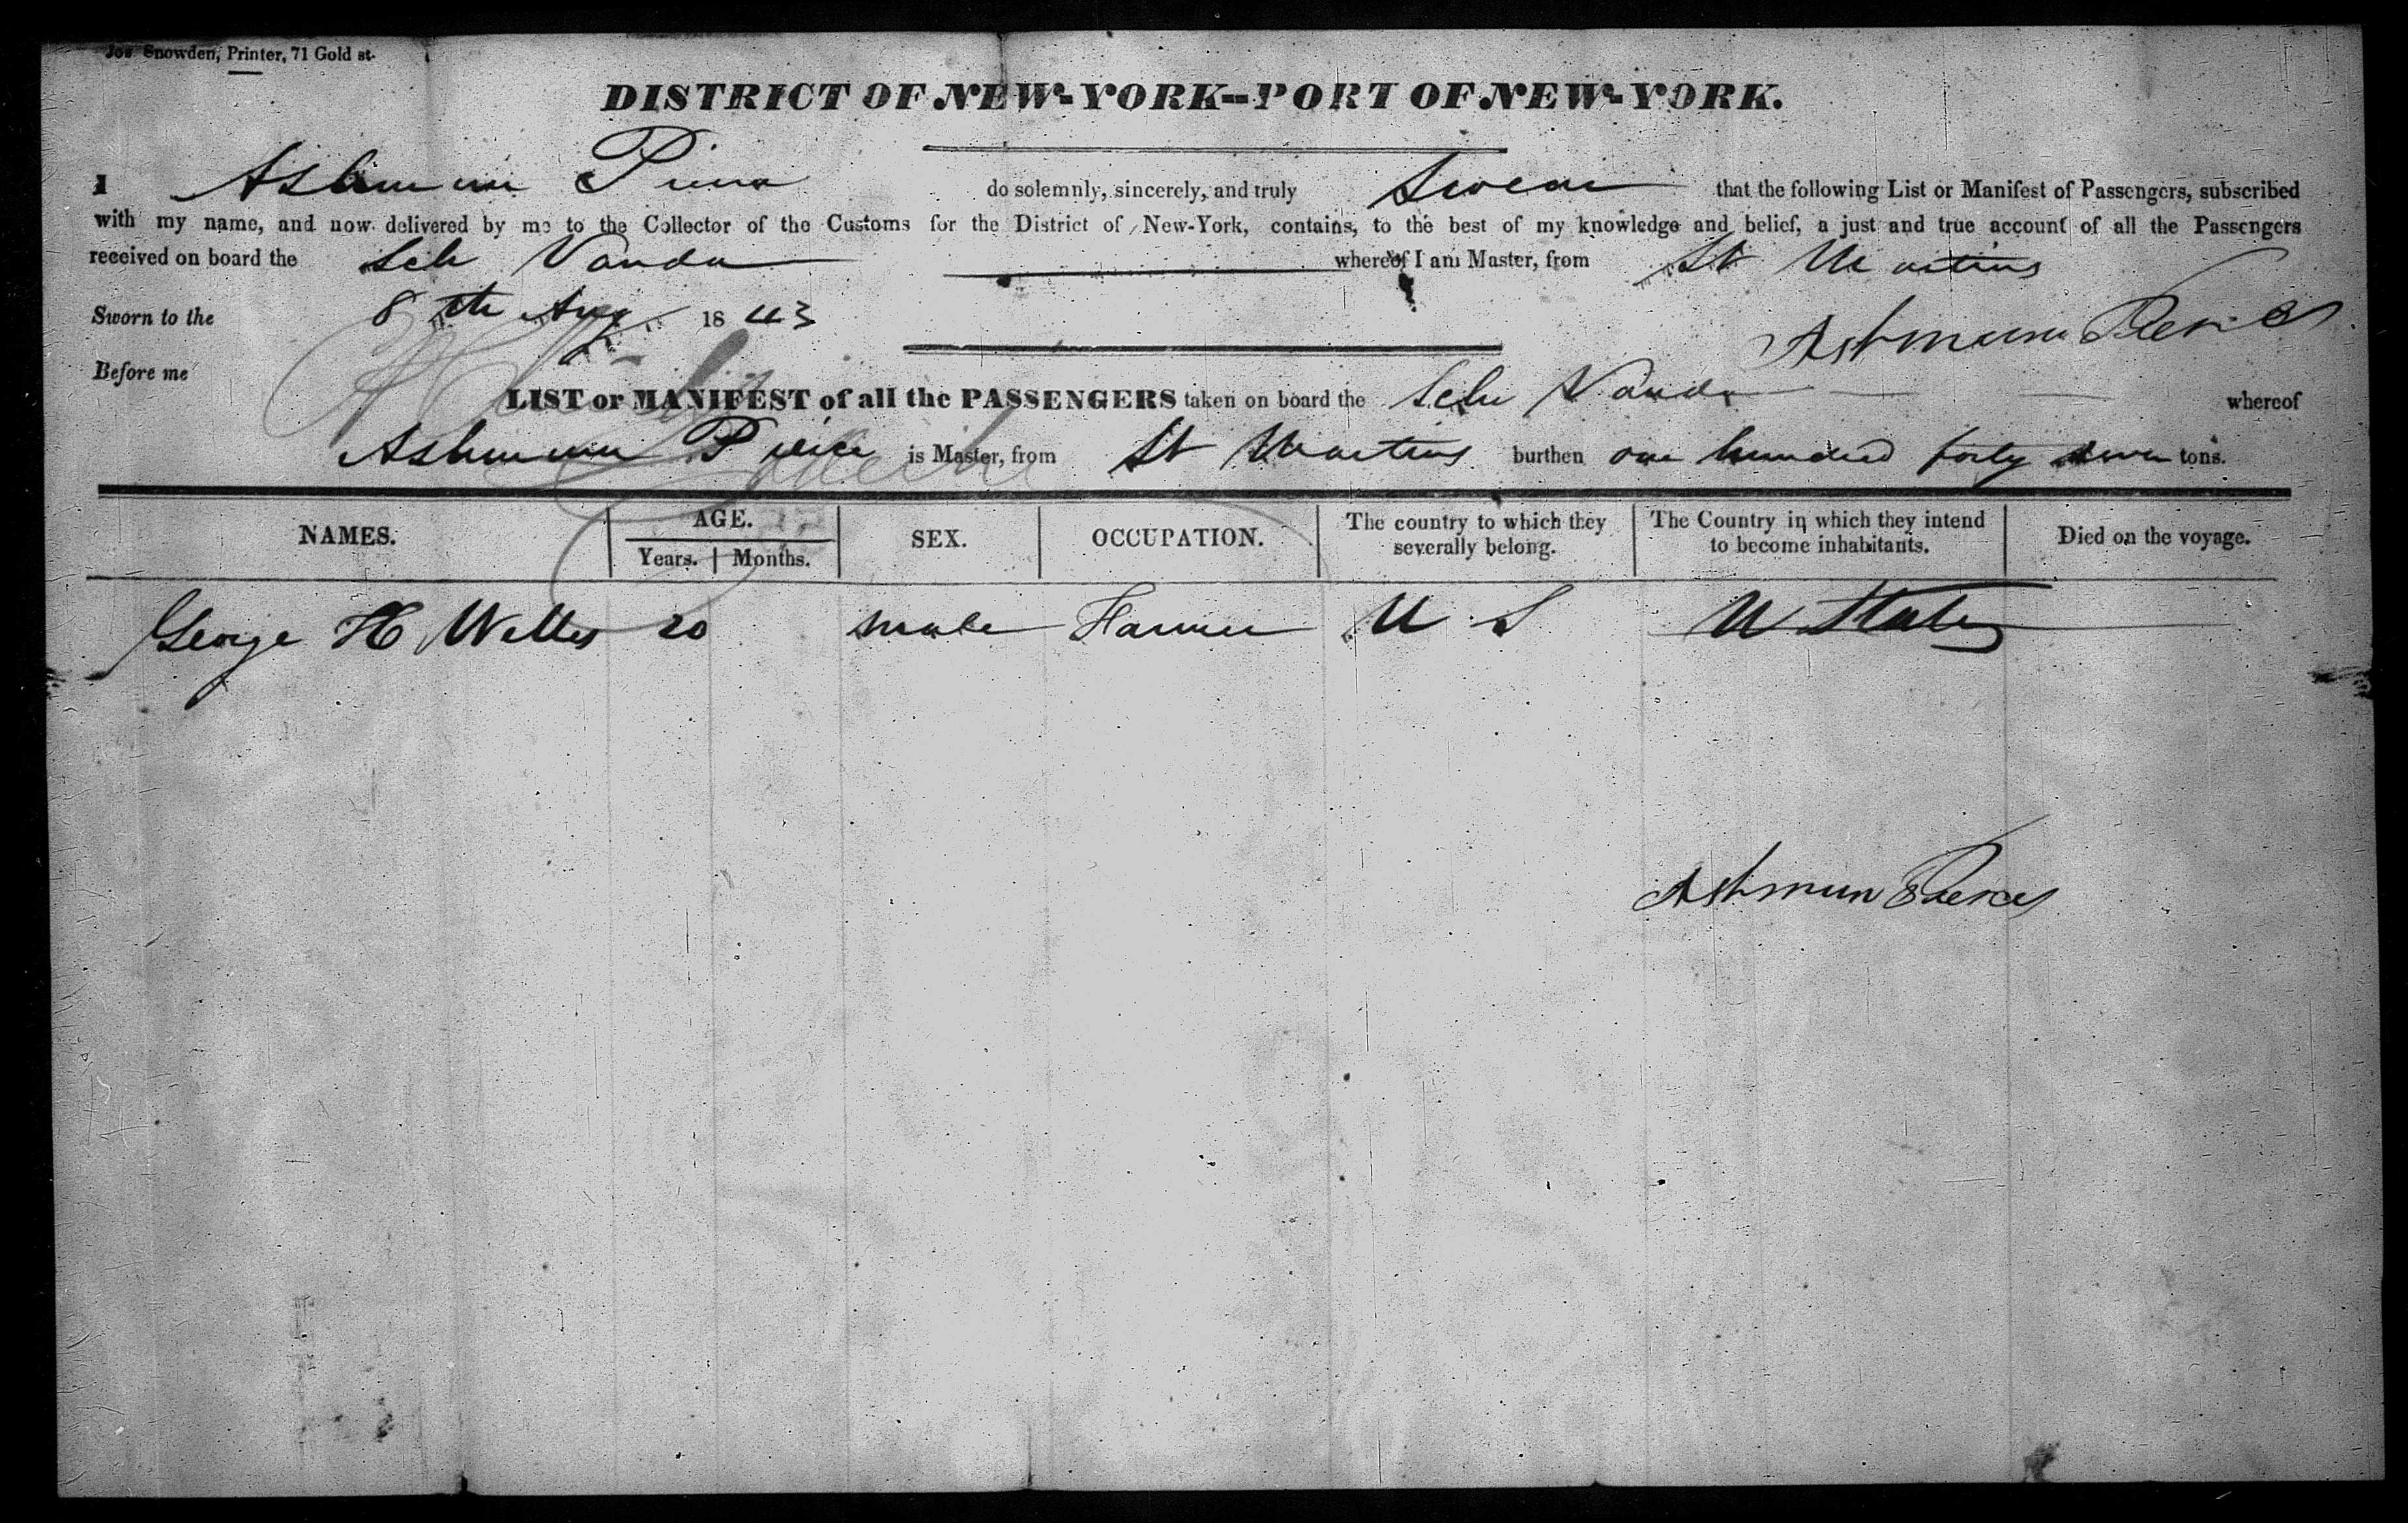 Jos Snowden, Printer, 71 Gold st.
DISTRICT OF NEW-YORK--PORT OF NEW-YORK.
I Ashmun Pierce do solemnly, sincerely, and truly Swear that the following List or Manifest of Passengers, subscribed
with my name, and now delivered by me to the Collector of the Customs for the District of New-York, contains, to the best of my knowledge and belief, a just and true account of all the Passengers
received on board the Sch Vanda whereof I am Master, from St Martins
Sworn to the 8th Aug 1843
Ashmun Pierce
Before me
LIST or MANIFEST of all the PASSENGERS taken on board the Schr Vanda whereof
Ashmun Pierce is Master, from St Martins burthen one hundred forty seven tons.
NAMES. AGE. Years. Months. SEX. OCCUPATION. The country to which they severally belong. The Country in which they intend to become inhabitants. Died on the voyage.
George H Welles 20 male Farmer U S U States
Ashmun Pierce